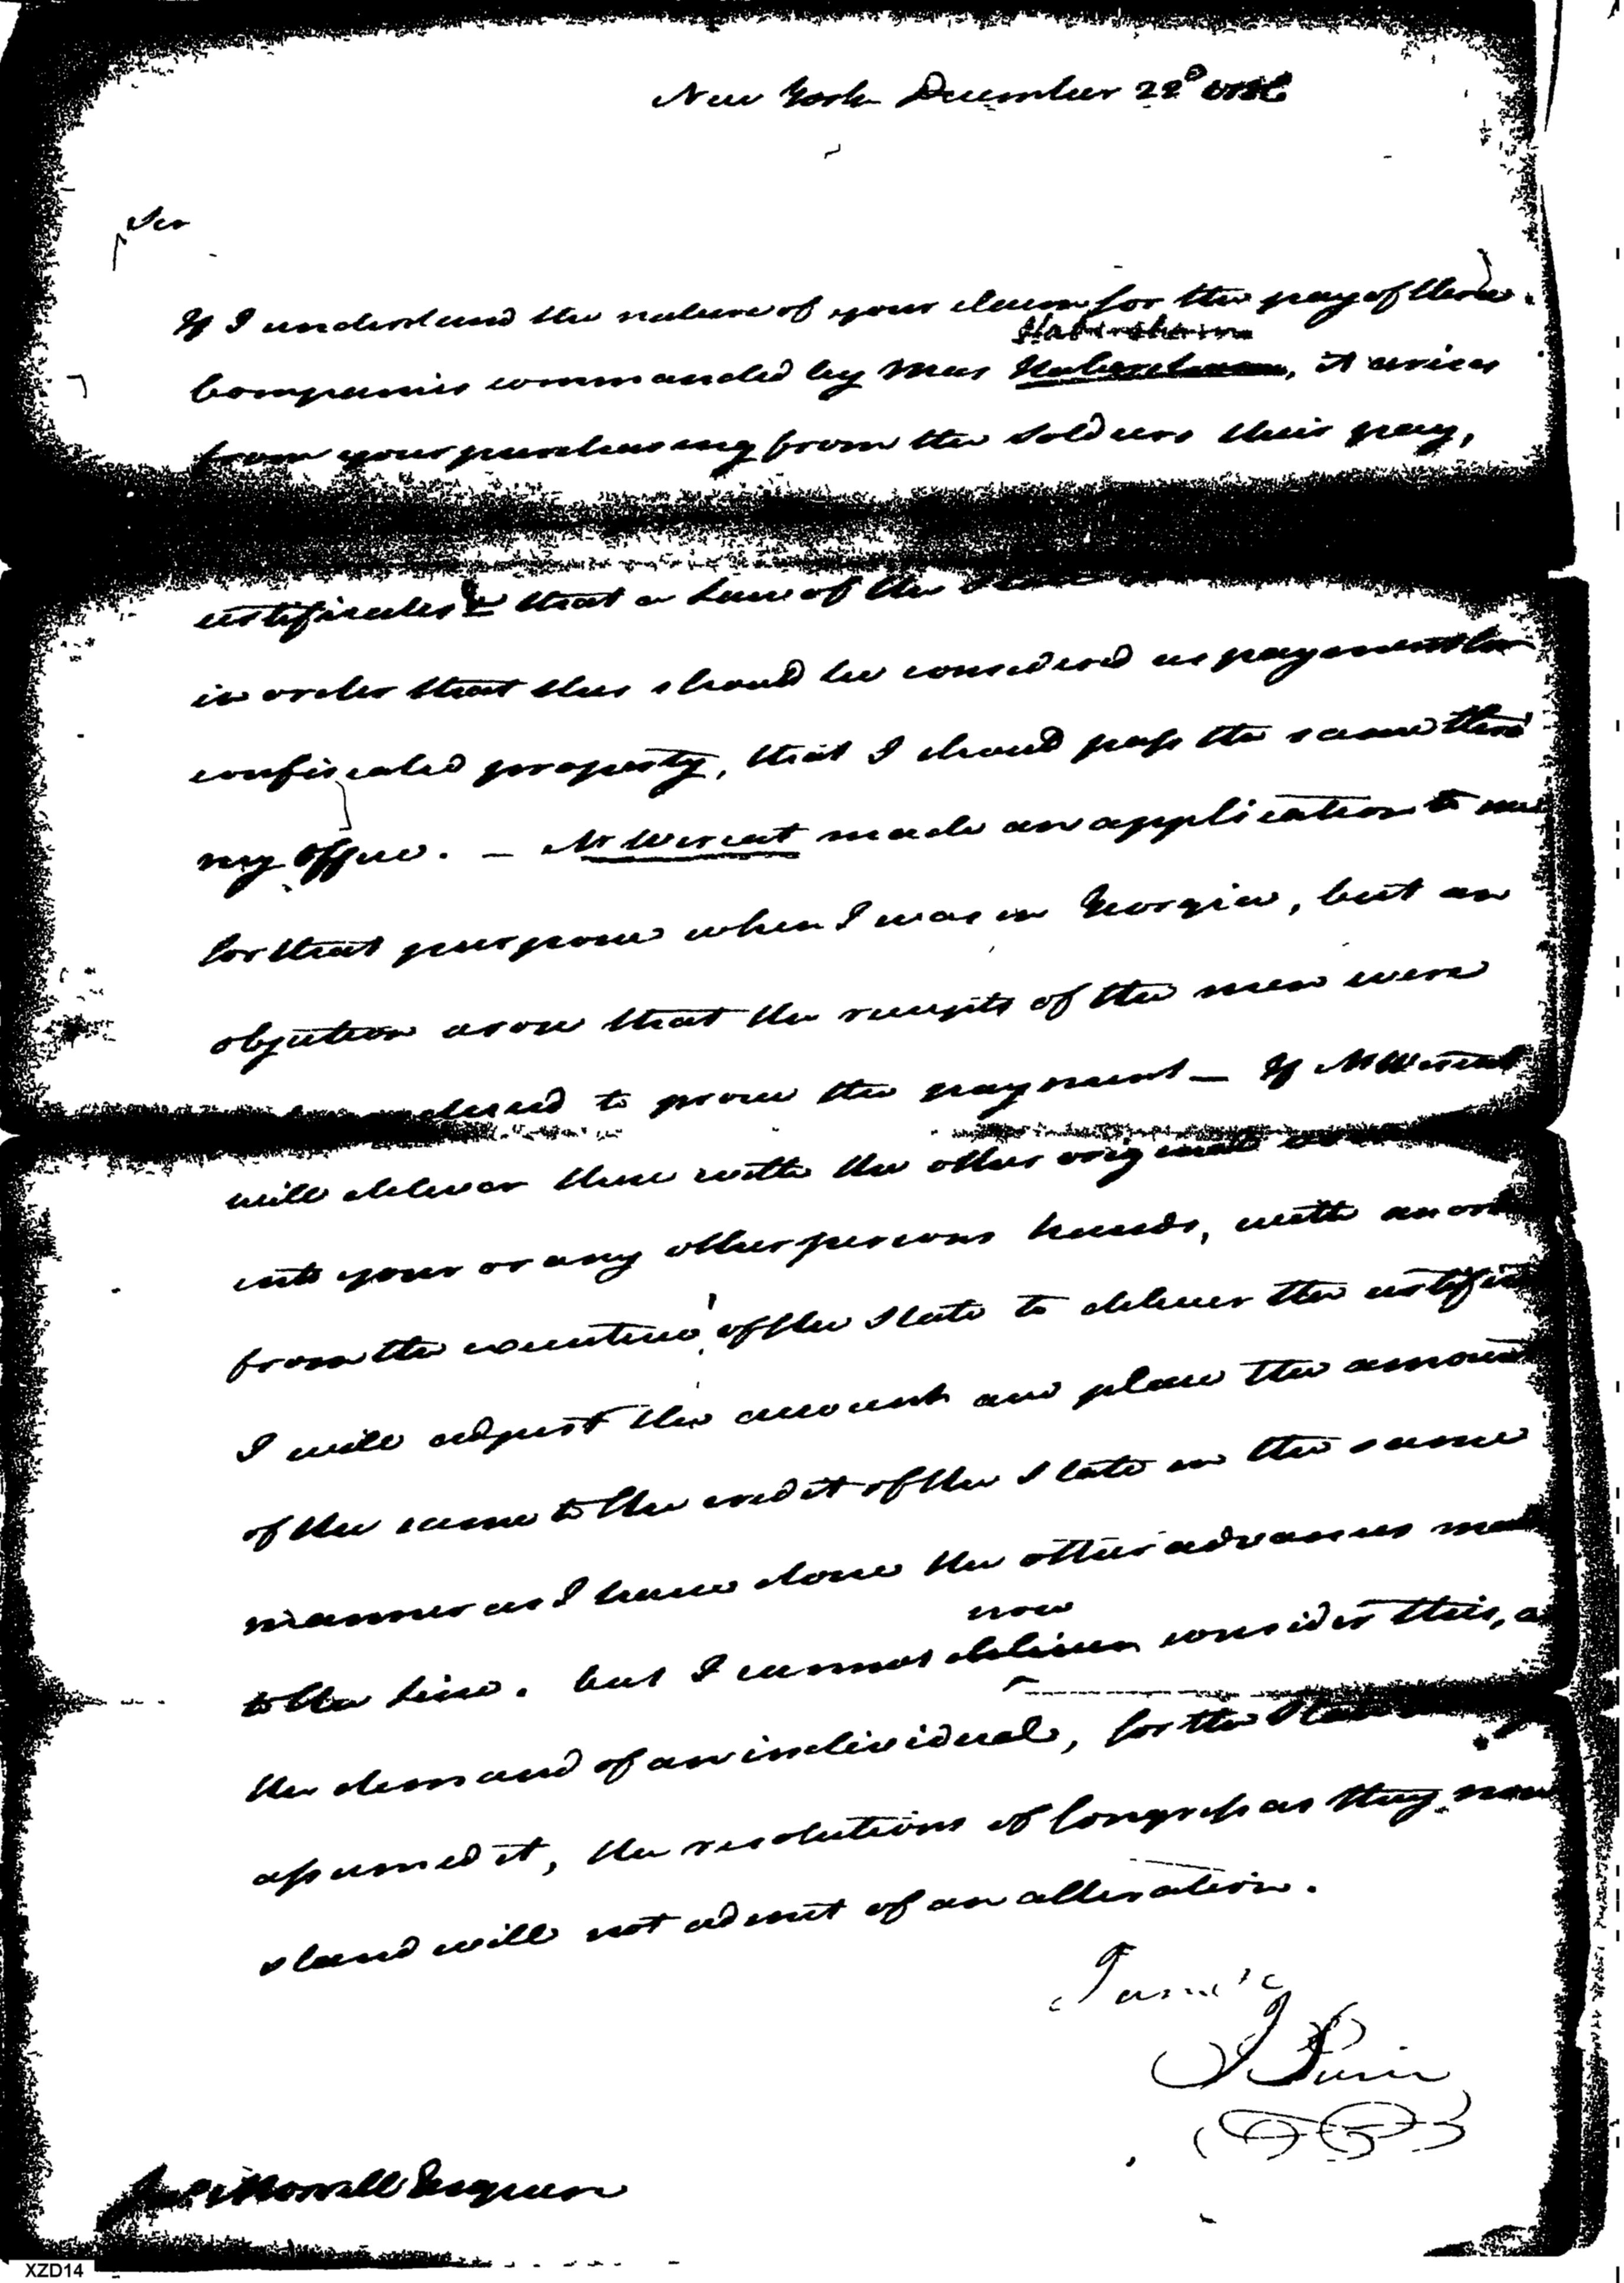 New York December 22d 1786
Sir
If I understand the nature of your claim for the pay of three
Habersham
Companies commanded by Mes Habersham, it arises
from your purchasing from the soldiers their pay,
certificates & that a Law of the State
in order that this should be considered as payment for
confiscated property, that I should pass the same thro'
my office. — Mr Wereat made an application to me
for that purpose when I was in Georgia, but an
objection arose that the receipts of the men were
to prove the payment — If Mr Wereat
will deliver these with the other original
into your or any other persons hands, with an
from the executive of the State to deliver the
I will adjust the account and place the amount
of the same to the credit of the State in the same
manner as I have done the other advances made
now
to the Line. but I cannot deliver consider this, as
the demand of an individual, for the State
assumed it, the resolutions of Congress as they now
stand will not admit of an alteration.
I am &c
J Pierce
Morrell Esquire
XZD14